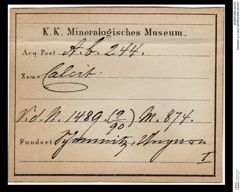 K. K. Mineralogisches Museum.
Acq. Post A. b. 244.
Name Calcit.
V. d. N. 1489. (9/90) M. 874.
Fundort Schemnitz, Ungarn
I